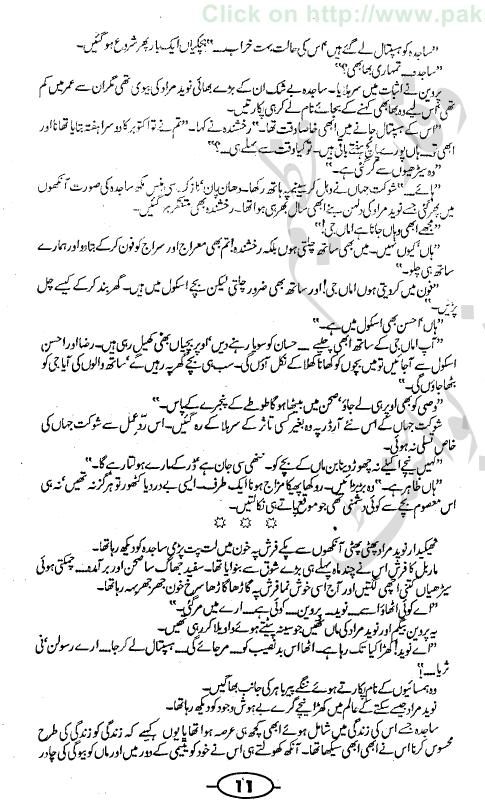 Click on http://www.pak
”ساجدہ کو ہسپتال لے گئے ہیں‘ اس کی حالت بہت خراب ہے....“ ہچکیاں ایک بار پھر شروع ہو گئیں۔
”ساجدہ.... تمہاری بھابھی؟“
پروین نے اثبات میں سر ہلایا۔ ساجدہ بے شک ان کے بڑے بھائی نوید مراد کی بیوی تھی مگر ان سے عمر میں کم
تھی‘ اس لیے وہ بھابھی کہنے کے بجائے نام لے کر ہی پکارتیں۔
”اس کے ہسپتال جانے میں ابھی خاصا وقت تھا۔“ رخشندہ نے کہا۔ ”تم نے تو اکتوبر کا دوسرا ہفتہ بتایا تھا نا اور
ابھی تو.... ہاں پورے پانچ ہفتے باقی ہیں۔ تو کیا وقت سے پہلے ہی....؟“
”وہ سیڑھیوں سے گر گئی ہے۔“
”ہائے....“ شوکت جہاں نے دہل کر سینے پہ ہاتھ رکھا۔ دھان پان‘ نازک سی ہنس مکھ ساجدہ کی صورت آنکھوں
میں پھر گئی جسے نوید مراد کی دلہن بنے ابھی سال بھر ہی ہوا تھا۔ رخشندہ بھی متفکر ہو گئیں۔
”مجھے ابھی وہاں جانا ہے اماں جی!“
”ہاں‘ کیوں نہیں۔ میں بھی ساتھ چلتی ہوں بلکہ رخشندہ! تم بھی معراج اور سراج کو فون کر کے بتا دو اور ہمارے
ساتھ ہی چلو۔“
”فون میں کر دیتی ہوں اماں جی! اور ساتھ بھی ضرور چلتی لیکن بچے اسکول میں ہیں۔ گھر بند کر کے کیسے چل
پڑیں۔“
”ہاں‘ احسن بھی اسکول میں ہے۔“
”آپ اماں جی کے ساتھ ابھی چلیے.... حسان کو سویا رہنے دیں‘ اوپر بچیاں بھی کھیل رہی ہیں۔ رضا اور احسن
اسکول سے آ جائیں تو میں بچوں کو کھانا کھلا کے نکل آؤں گی۔ سب ہی بچے گھر پہ رہیں گے‘ ساتھ والوں کی آیا جی کو
بٹھا جاؤں گی۔“
”وصی کو بھی اوپر ہی لے جاؤ‘ صحن میں بیٹھا ہو گا طوطے کے پنجرے کے پاس۔“
شوکت جہاں کے اس نئے آرڈر پہ وہ بغیر کسی تاثر کے سر ہلا کے رہ گئیں۔ اس ردِّ عمل سے شوکت جہاں کی
خاص تسلی نہ ہوئی۔
”کہیں نیچے اکیلے نہ چھوڑ دینا بن ماں کے بچے کو۔ ننھی سی جان ہے‘ ڈر کے مارے ہولتا رہے گا۔“
”ہاں ظاہر ہے۔“ وہ بڑبڑائیں۔ روکھا پھیکا مزاج ہونا ایک طرف۔ ایسی بے درد یا کٹھور تو ہرگز نہ تھیں‘ نہ ہی
اس معصوم بچے سے کوئی دشمنی تھی جو موقع پاتے ہی نکالتیں۔
☼ ☼ ☼
ٹھیکیدار نوید مراد پھٹی پھٹی آنکھوں سے پکے فرش پہ خون میں لت پت پڑی ساجدہ کو دیکھ رہا تھا۔
ماربل کا فرش اس نے چند ماہ پہلے ہی بڑے شوق سے بنوایا تھا۔ سفید جھاگ سا صحن اور برآمدہ.... چمکتی ہوئی
سیڑھیاں کتنی اچھی لگتیں اور آج اسی خوش نما فرش پہ گاڑھا گاڑھا سرخ خون جھر جھر بہہ رہا تھا۔
”اے کوئی اٹھاؤ اسے.... نوید۔ پروین.... کوئی ہے.... ارے میں مر گئی۔“
یہ پروین بیگم اور نوید مراد کی ماں تھیں جو سینہ پیٹتے ہوئے واویلا کر رہی تھیں۔
”اے نوید! کھڑا کیا تک رہا ہے۔ اٹھا اس بدنصیب کو.... مر جائے گی.... ہسپتال لے کر جا.... ارے رسولن‘ نی
ثریا....!“
وہ ہمسائیوں کے نام پکارتے ہوئے ننگے پیر باہر کی جانب بھاگیں۔
نوید مراد جیسے سکتے کے عالم میں کھڑا نیچے گرے بے ہوش وجود کو دیکھ رہا تھا۔
ساجدہ جسے اس کی زندگی میں شامل ہوئے ابھی کچھ ہی عرصہ ہوا تھا یا یوں کہیے کہ زندگی کو زندگی کی طرح
محسوس کرنا اس نے ابھی ابھی سیکھا تھا۔ آنکھ کھولتے ہی اس نے خود کو یتیمی کے دور میں اور ماں کو بیوگی کی چادر
11